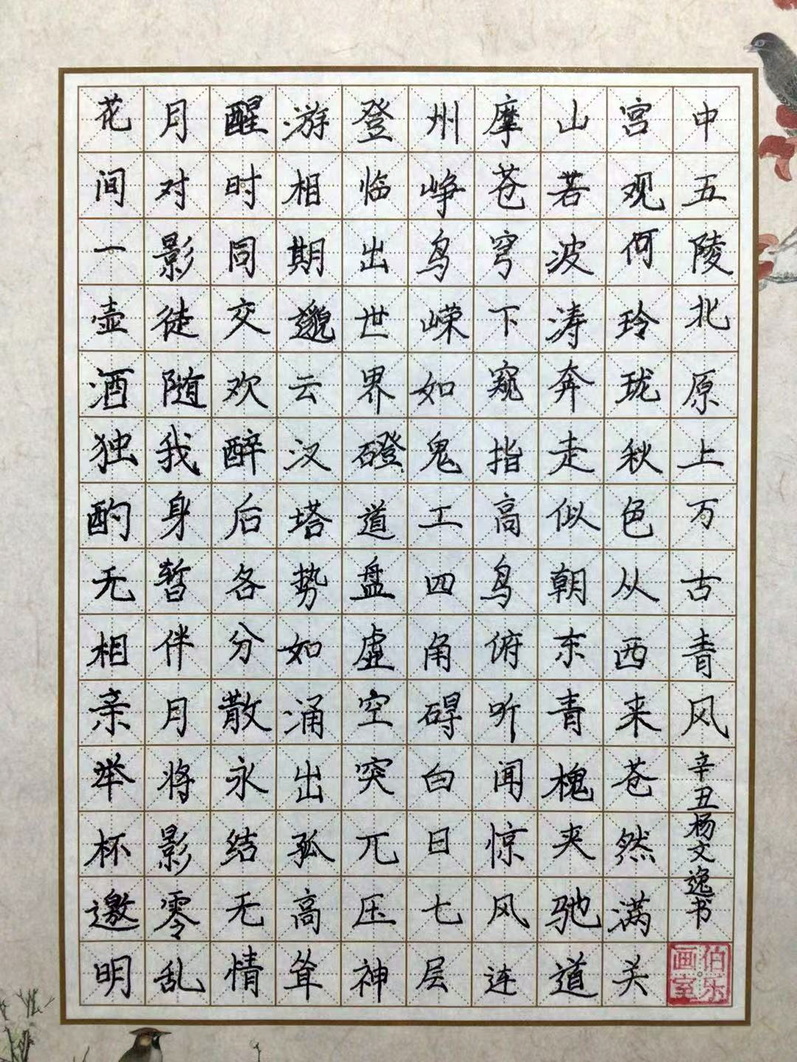 花间一壶酒独酌无相亲举杯邀明
月对影徒随我身暂伴月将影零乱
醒时同交欢醉后各分散永结无情
游相期邈云汉塔势如涌出孤高耸
登临出世界磴道盘虚空突兀压神
州峥鸟嵘如鬼工四角碍白日七层
摩苍穹下窥指高鸟俯听闻惊风连
山若波涛奔走似朝东青槐夹驰道
宫观何玲珑秋色从西来苍然满关
中五陵北原上万古青风
辛丑杨文逸书
伯乐画室